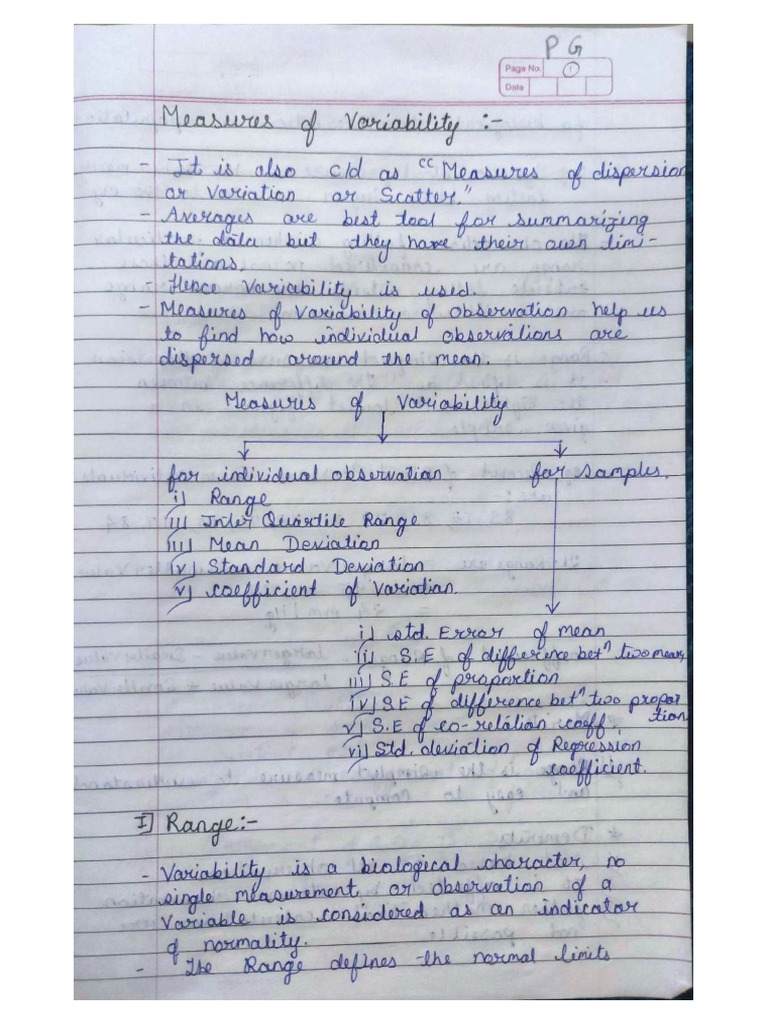 P G
Page No. 1
Date
Measures of Variability :-
- It is also c/d as "Measures of dispersion
or Variation or Scatter."
- Averages are best tool for summarizing
the data but they have their own limi-
tations.
Hence Variability is used.
- Measures of Variability of observation help us
to find how individual observations are
dispersed around the mean.
Measures of Variability
for individual observation for samples.
i) Range
ii) Inter Quartile Range
iii) Mean Deviation
iv) Standard Deviation
v) coefficient of Variation.
i) std. Error of mean
ii) S.E of difference betn two mean
iii) S.E of proportion
iv) S.E of difference betn two propor
v) S.E of co-relation coeff. tion
vi) Std. deviation of Regression
coefficient.
I) Range:-
- Variability is a biological character, no
single measurement or observation of a
Variable is considered as an indicator
of normality.
- The Range defines the normal limits